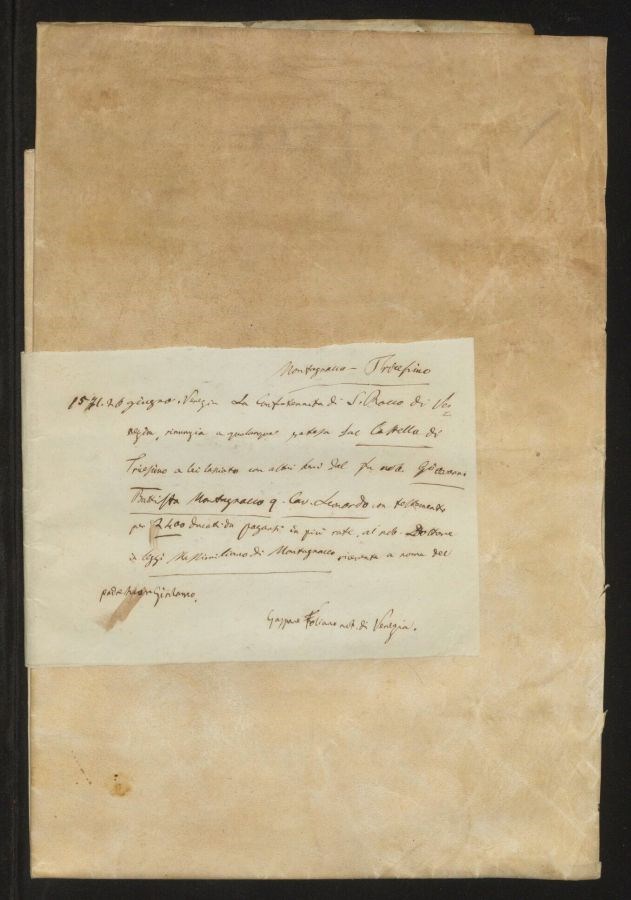 Montegnacco - Tricesimo
1571. 26 giugno. Venezia La Confraternita di S. Rocco di Ve=
nezia, rinunzia a qualunque pretesa sul Castello di
Tricesimo a lei lasciato con altri beni dal fu nob. Giovanni
Battista Montegnacco q. Cav. Leonardo con testamento
per 2400 ducati da pagarsi in più rate, al nob. Dottore
in leggi Massimiliano di Montegnacco a nome del
padre Girolamo.
Gaspare Foliano not. di Venezia.